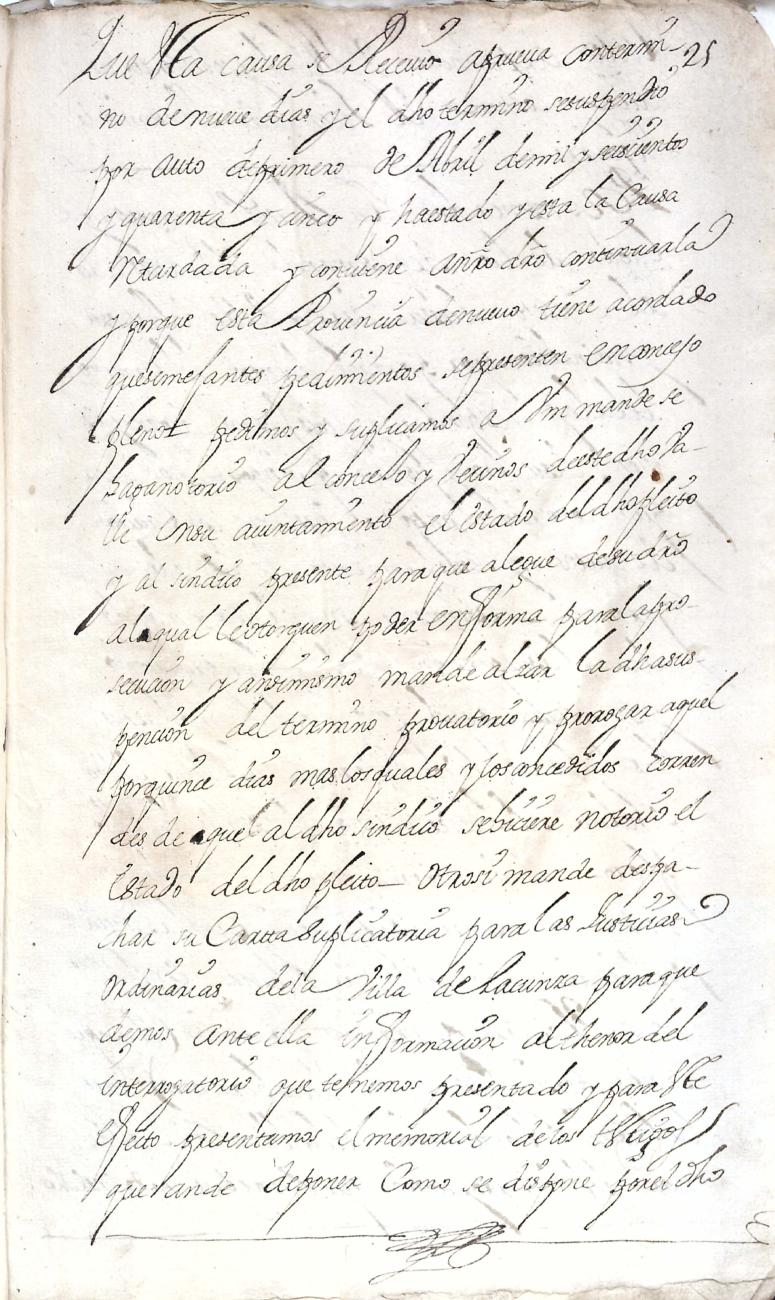 25
Que esta causa se Receuio aprueua contermi-
no denueue dias y el dho termino sesuspendio
por auto deprimero de Abril demil y seiscientos
y quarenta y cinco y haestado y esta la Causa
Retardada y conuiene anro dro continuarla
y porque esta Prouincia denueuo tiene acordado
quesemejantes pedimientos sepresenten enconcejo
pleno pedimos y suplicamos a Vm mande se
haganotorio al concejo y Vecinos deestedho Va-
lle ensu aiuntamiento el estado deldhopleito
y al sindico presente paraque alegue desu dro
alaqual leotorguen poder enforma paralapro-
secucion y ansimismo mande alzar la dhasus-
pencion del termino prouatorio y prorogar aquel
porquince dias mas losquales y losconcedidos corren
desde aquel aldho sindico sehiciere notorio el
Estado deldho pleito – otrosi mande despa-
har su Carta Suplicatoria paralas Justicias
ordinarias dela Villa de Lacunza paraque
demos ante ella informacion althenordel
interrogatorio que tenemos presentado y para este
efecto presentamos elmemorial delos testigos
querande deponer Como se dispone porel dho